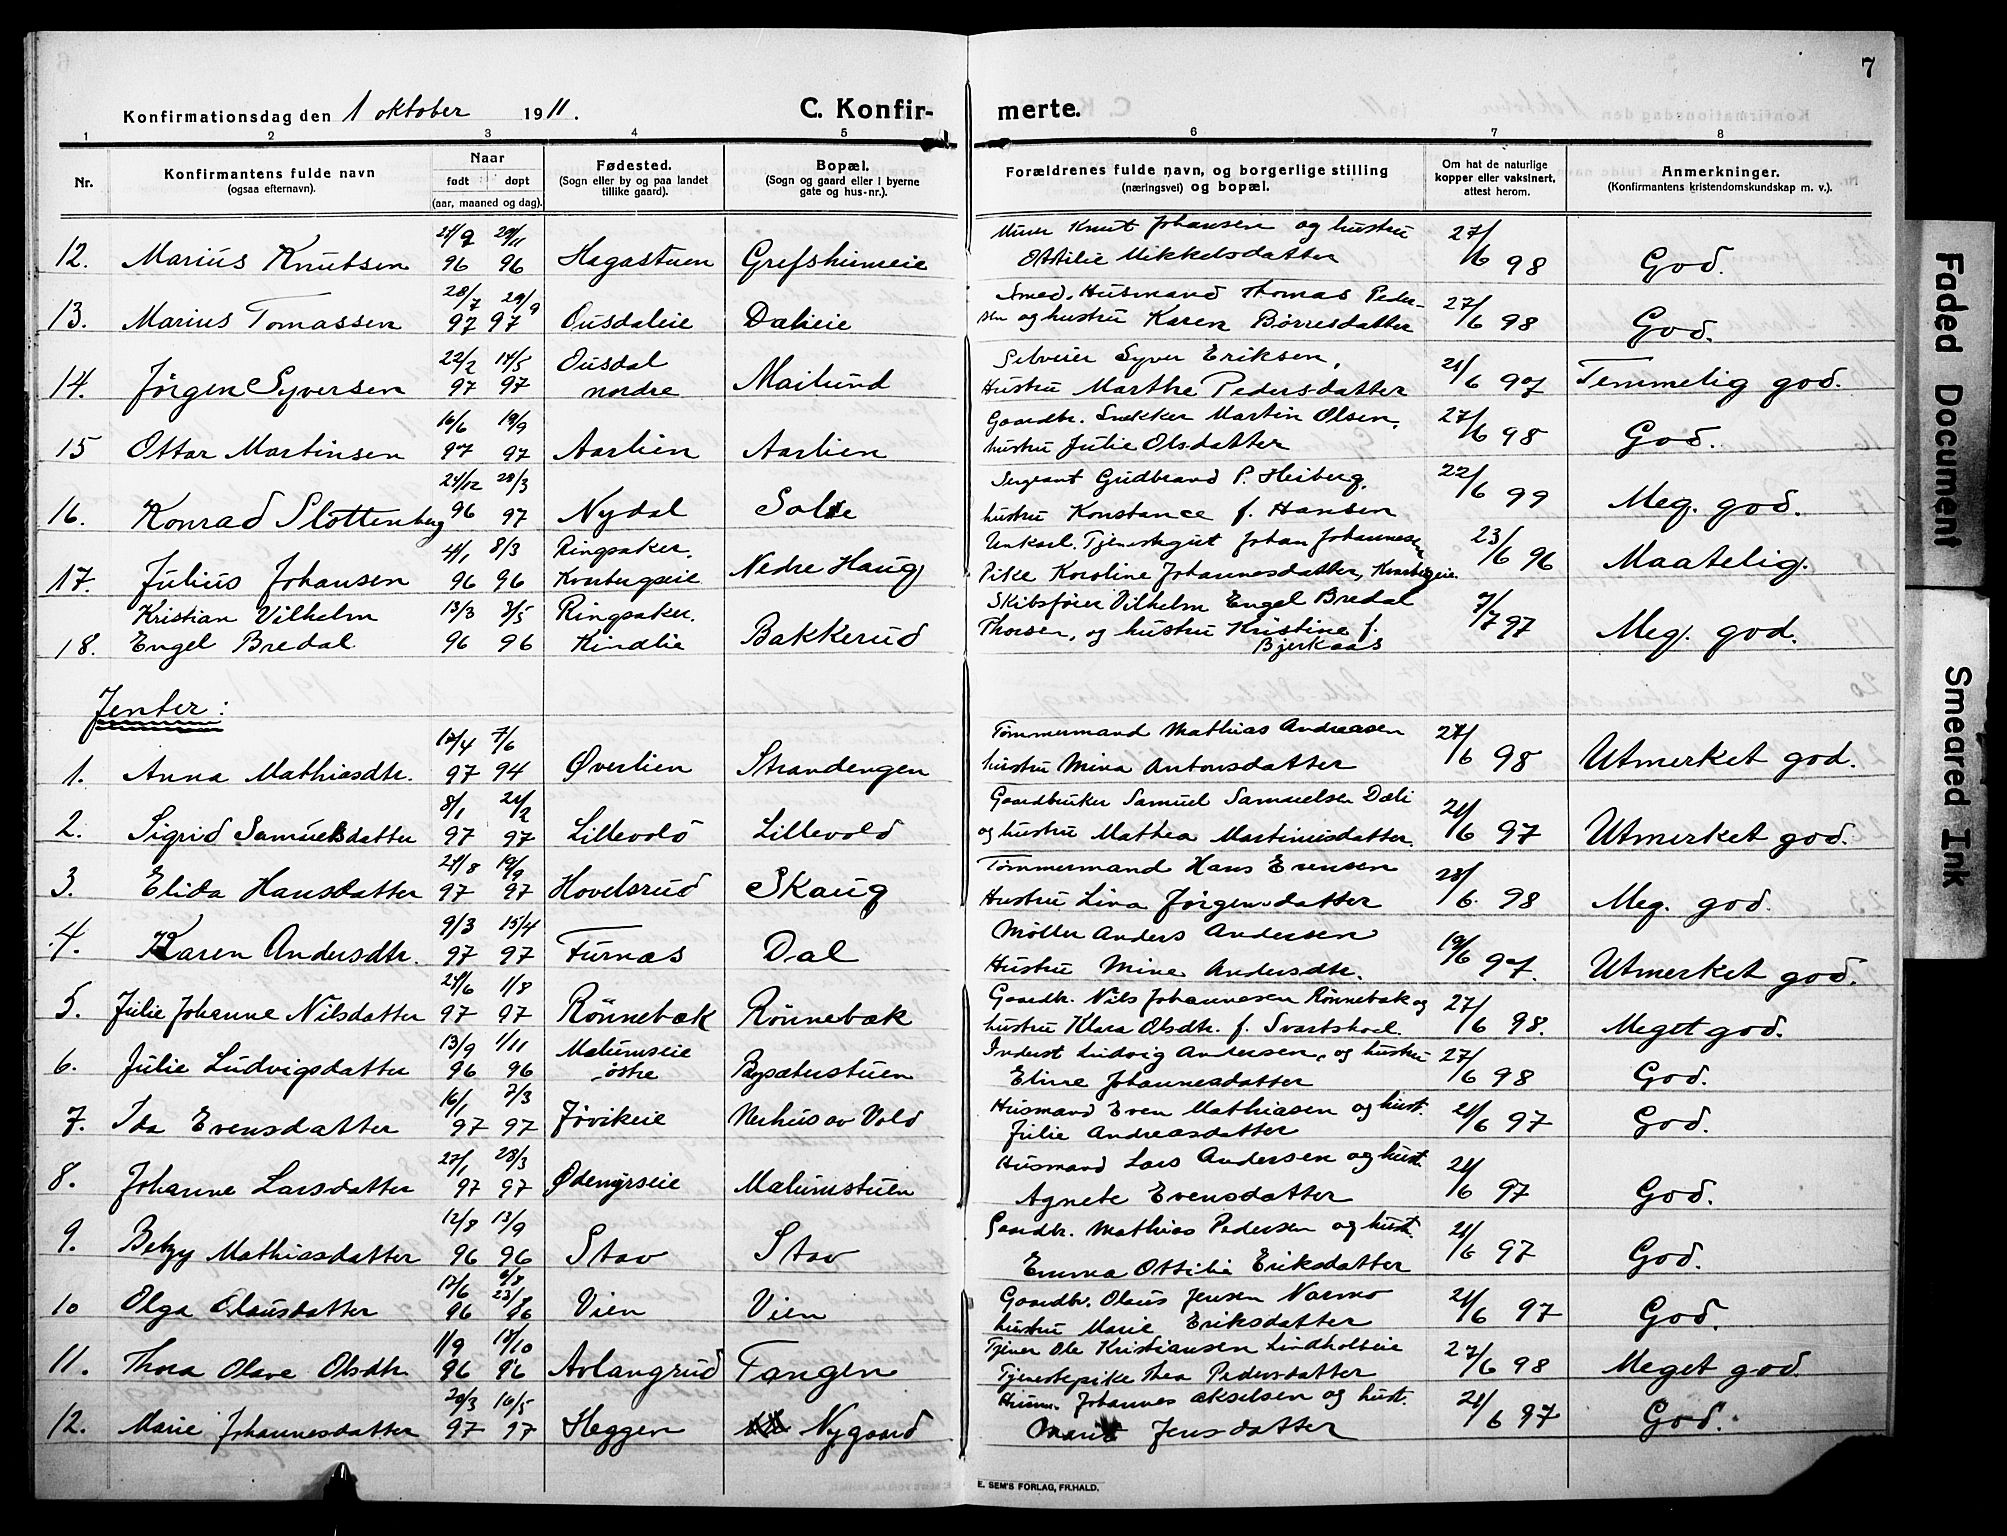 7
Konfirmationsdag den 1 oktober 1911.
C. Konfir-
merte.
1 2 3 4 5 6 7 8
Nr.
Konfirmantens fulde navn
(ogsaa efternavn).
Naar
født døpt
(aar, maaned og dag).
Fødested.
(Sogn eller by og paa landet
tillike gaard).
Bopæl.
(Sogn og gaard eller i byerne
gate og hus-nr.).
Forældrenes fulde navn, og borgerlige stilling
(næringsvei) og bopæl.
Om hat de naturlige
kopper eller vaksinert,
attest herom.
Anmerkninger.
(Konfirmantens kristendomskundskap m. v.).
Murer Knut Johansen og hustru 27/
12. Marius Knutsen 96 96 Hagastuen Grefsheimeie Ottilie Mikkelsdatter 6 98 God.
28/7 29/9 Smed. Husmand Thomas Peder- 27/
13. Marius Tomassen 97 97 Ousdaleie Daleie sen og hustru Karen Børresdatter 6 98 God.
22/2 14/5 Ousdal Selveier Syver Eriksen, 21/
14. Jørgen Syversen 97 97 nordre Mailund Hustru Marthe Pedersdatter 6 97 Temmelig god.
16/6 19/9 Gaardbr. Snekker Martin Olsen, 27/
15 Ottar Martinsen 97 97 Aarlien Aarlien hustru Julie Olsdatter 6 98 God.
21/12 28/3 Sergeant Gudbrand P. Heiberg, 22/
16. Konrad Slottenberg 96 97 Nydal hustru Konstance f. Hansen 6 99 Meg. god.
8/3 Ringsaker. Unkarl. Tjenestegut Johan Johannesen 23/
17. Julius Johansen 96 96 Kvarbergseie Nedre Haug Pike Karoline Johannesdatter, 6 96 Maatelig.
Kristian Vilhelm 13/3 3/5 Ringsaker. Skibsfører Vilhelm Engel Bredal 7/
18. Engel Bredal 96 96 Kindlie Bakkerud Thorsen, og hustru Kristine f. 7 97 Meg. god.
Bjerkaas
Jenter:
7/6 Tømmermand Mathias Andreasen
1. Anna Mathiasdtr. 97 94 Øverlien Strandengen hustru Mina Antonsdatter 6 98 Utmerket god.
8/1 21/2 Gaardbruker Samuel Samuelsen Dæli 21/
2. Sigrid Samuelsdatter 97 97 Lillevold Lillevold og hustru Mathea Martinusdatter. 6 97 Utmerket god.
21/8 19/9 Tømmermand Hans Evensen 28/
3. Elida Hansdatter 97 97 Hovelsrud Skaug Hustru Lina Jørgensdatter 6. 98 Meg. god.
9/3 15/4 Møller Anders Andersen 19/
4. Karen Andersdtr. 97 97 Furnæs Dal Hustru Mine Andersdtr. 6 97. Utmerket god.
21/6 1/8 Gaardbr. Nils Johannesen Rønnebæk og 27/
5. Julie Johanne Nilsdatter 97 97 Rønnebæk Rønnebæk hustru Klara Olsdtr. f. 6 98. Meget god.
13/9 1/11 Malumseie Inderst Ludvig Andersen, og hustru 27/
6. Julie Ludvigsdatter 96 96 østre Bysæterstuen Eline Johannesdatter 6 98 God.
16/1 7/3 Husmand Even Mathiasen og hust. 21/
7. Ida Evensdatter 97 97 Jøvikeie Nerhus av Vold Julie Andreasdatter 6 97 God.
27/1 28/3 Husmand Lars Andersen og hust. 21/
8. Johanne Larsdatter 97 97 Ødemyrseie Malumstuen Agnete Evensdatter 6 97 God.
12/8 13/9 Gaardbr. Mathias Pedersen og hust. 21/
9. Betzy Mathiasdatter 96 96 Stav Stav Emma Ottilie Eriksdatter 6 97 God.
17/6 Gaardbr. Olaus Jensen Narmo 21/
10 Olga Olausdatter 96 Vien Vien hustru Marie Eriksdatter 6 97 God.
1/9 18/10 Tjener Ole Kristiansen Lindholteie 27/
11. Thora Olave Olsdtr. 96 96 Avlangrud Tangen Tjenestepike Thea Pedersdatter 6 98 Meget god.
20/3 16/5 Husm. Johannes Akselsen og hust. 21/
12. Marie Johannesdatter 97 97 Heggen Nygaard Marit Jensdatter 6 97 God.
E. SEM'S FORLAG, FR.HALD.
Faded Document
Smeared Ink